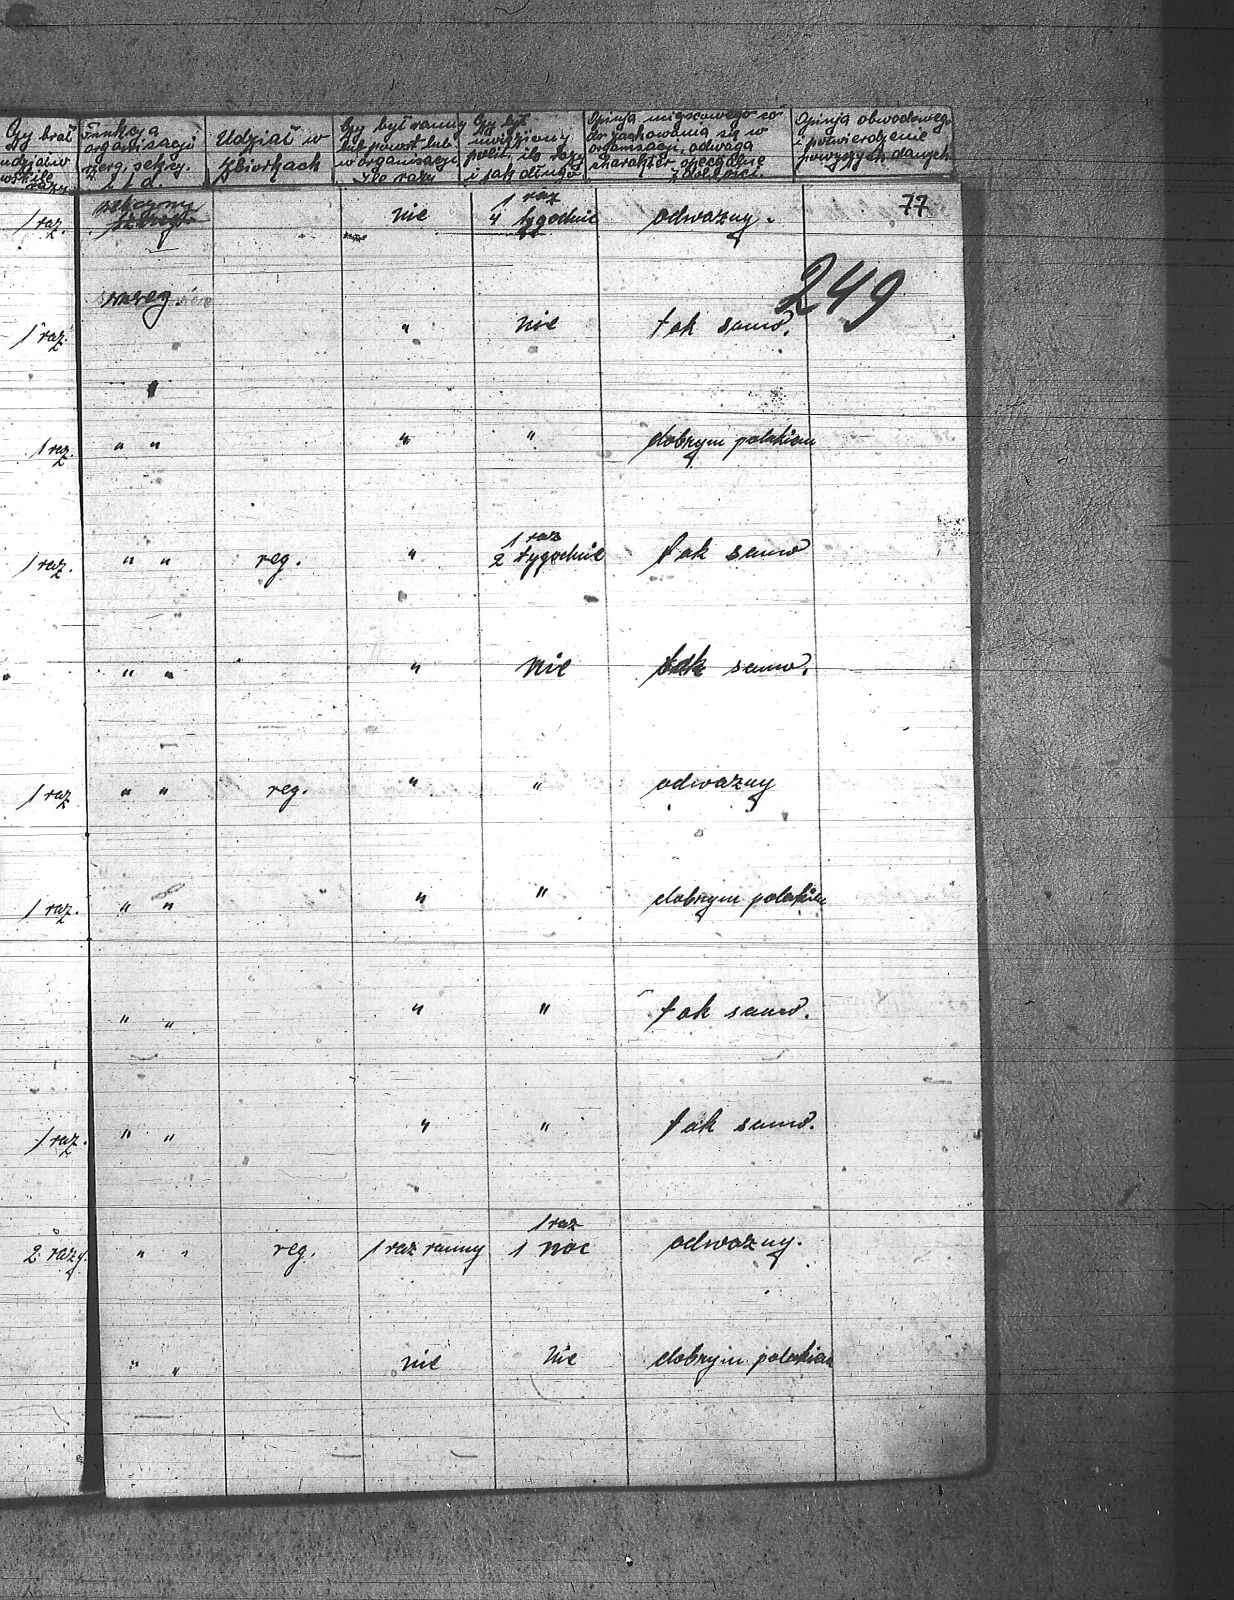 Czy brał udział w powst. ile razy
Funkcja organisacji szereg. sekcyj. i t. d.
Udział w Zbiórkach
Czy był ranny lub powst. lub w organisacji Ile razy
Czy był uwięziony polit. ile razy i jak długo
Opinja miejscowego co do zachowania się w organisacji, odwaga charakter specjalne zdolności.
Opinja obwodowego i potwierdzenie powyższych danych
77
1 raz. nie 1 raz 4 tygodnie odwazny.
249
szereg.
1 raz. " nie tak samo.
1 raz. " " " " dobrym polakiem
1 raz. " " reg. " 1 raz 2 tygodnie tak samo
" " " nie tak samo.
1 raz " " reg. " " odwazny
1 raz. " " " " dobrym polakiem
" " " " tak samo.
1 raz. " " " " tak samo.
2 razy. " " reg. 1 raz ranny 1 raz 1 noc odwazny.
" " nie nie dobrym polakiem